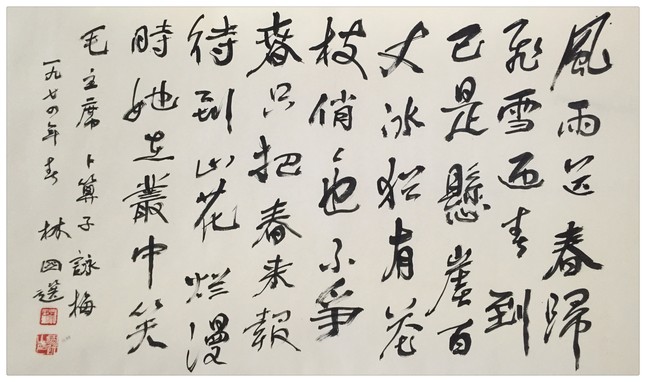 风雨送春歸
飛雪迎春到
已是懸崖百
丈冰猶有花
枝俏俏也不爭
春只把春来報
待到山花烂漫
時她在叢中笑
毛主席卜算子詠梅
一九七四年春 林